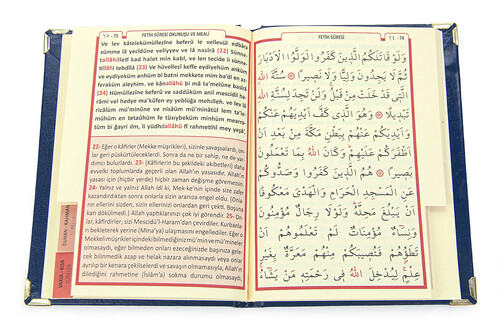 ٧٥ - 75 FETİH SÛRESİ OKUNUŞU ve MEALİ
Ve lev kâtelekümüllezîne keferû le vellevül edbâra
sümme lâ yecidûne veliyyev ve lâ nasîrâ (22) Sünne-
tallâhilletî kad halet min kabl, ve len tecide li sünne-
tillâhi tebdîlâ (23) Ve hüvellezî keffe eydiyehüm anküm
ve eydiyeküm anhüm bi batni mekkete mim ba'di en az-
feraküm aleyhim. ve kânallâhü bi mâ ta'melûne basîrâ
(24) Hümüllezîne keferû ve saddûküm anil mescidil ha-
râmi vel hedye ma'kûfen ey yeblüğa mehılleh. ve lev lâ
ricâlüm mü'minûne ve nisâüm mü'minâtül lem ta'le-
mûhüm en tetaûhüm fe tüsıybeküm minhüm mearra-
tüm bi ğayri ılm, li yüdhılallâhü fî rahmetihî mey yeşâ',
22- Eğer o kâfirler (Mekke müşrikleri), sizinle savaşsalardı, on-
lar geri püskürtüleceklerdi. Sonra da ne bir sahip, ne de yar-
dımcı bulurlardı. 23- (Kâfirlerin bu şekildeki akıbetleri) daha
evvelki toplumlarda geçerli olan Allah'ın yasasıdır. Allah'ın
yasası için (hiçbir yerde) hiçbir zaman değişme göremezsin.
24- Yalnız ve yalnız Allah idi ki, Mek-ke'nin içinde size zafer
kazandırdıktan sonra onlarla sizin aranıza engel oldu. (Onla-
rın ellerini sizden, sizin ellerinizi onlardan geri çekti. Boşuna
kan dökülmedi.) Allah yaptıklarınızı çok iyi görendir. 25- On-
lar, kâfirdirler; sizi Mescidü'l-Haram'dan çevirdiler. Kurbanla-
rı bekleterek yerine (Mina'ya) ulaşmasını engellediler. Eğer o
Mekkeli müşrikler içindeki bilmediğiniz mü'min ve mü'mineler
olmasaydı, eğer bilmeden onları ezeceğinizde başınıza gele-
cek bilinmedik azap ve helak nazara alınmasaydı veya onlar
ayrılıp bir kenara çekilselerdi ve savaşın olmamasıyla, Allah'ın
dilediğini rahmetine (İslâm'a) sokma durumu olmasaydı,
DUHAN - RAHMAN
VAKIA - KISA
SÛRELER
FETİH SÛRESİ ٧٤ - 74
وَلَوْ قَاتَلَكُمُ الَّذِينَ كَفَرُوا لَوَلَّوُا الْاَدْبَارَ
ثُمَّ لَا يَجِدُونَ وَلِيًّا وَلَا نَصِيرًا ۝ سُنَّةَ اللّٰهِ
الَّتِي قَدْ خَلَتْ مِنْ قَبْلُ وَلَنْ تَجِدَ لِسُنَّةِ اللّٰهِ
تَبْدِيلًا ۝ وَهُوَ الَّذِي كَفَّ اَيْدِيَهُمْ عَنْكُمْ
وَاَيْدِيَكُمْ عَنْهُمْ بِبَطْنِ مَكَّةَ مِنْ بَعْدِ اَنْ
اَظْفَرَكُمْ عَلَيْهِمْ وَكَانَ اللّٰهُ بِمَا تَعْمَلُونَ
بَصِيرًا ۝ هُمُ الَّذِينَ كَفَرُوا وَصَدُّوكُمْ
عَنِ الْمَسْجِدِ الْحَرَامِ وَالْهَدْيَ مَعْكُوفًا
اَنْ يَبْلُغَ مَحِلَّهُ وَلَوْلَا رِجَالٌ مُؤْمِنُونَ
وَنِسَاءٌ مُؤْمِنَاتٌ لَمْ تَعْلَمُوهُمْ اَنْ
تَطَؤُهُمْ فَتُصِيبَكُمْ مِنْهُمْ مَعَرَّةٌ بِغَيْرِ
عِلْمٍ لِيُدْخِلَ اللّٰهُ فِي رَحْمَتِهِ مَنْ يَشَاءُ